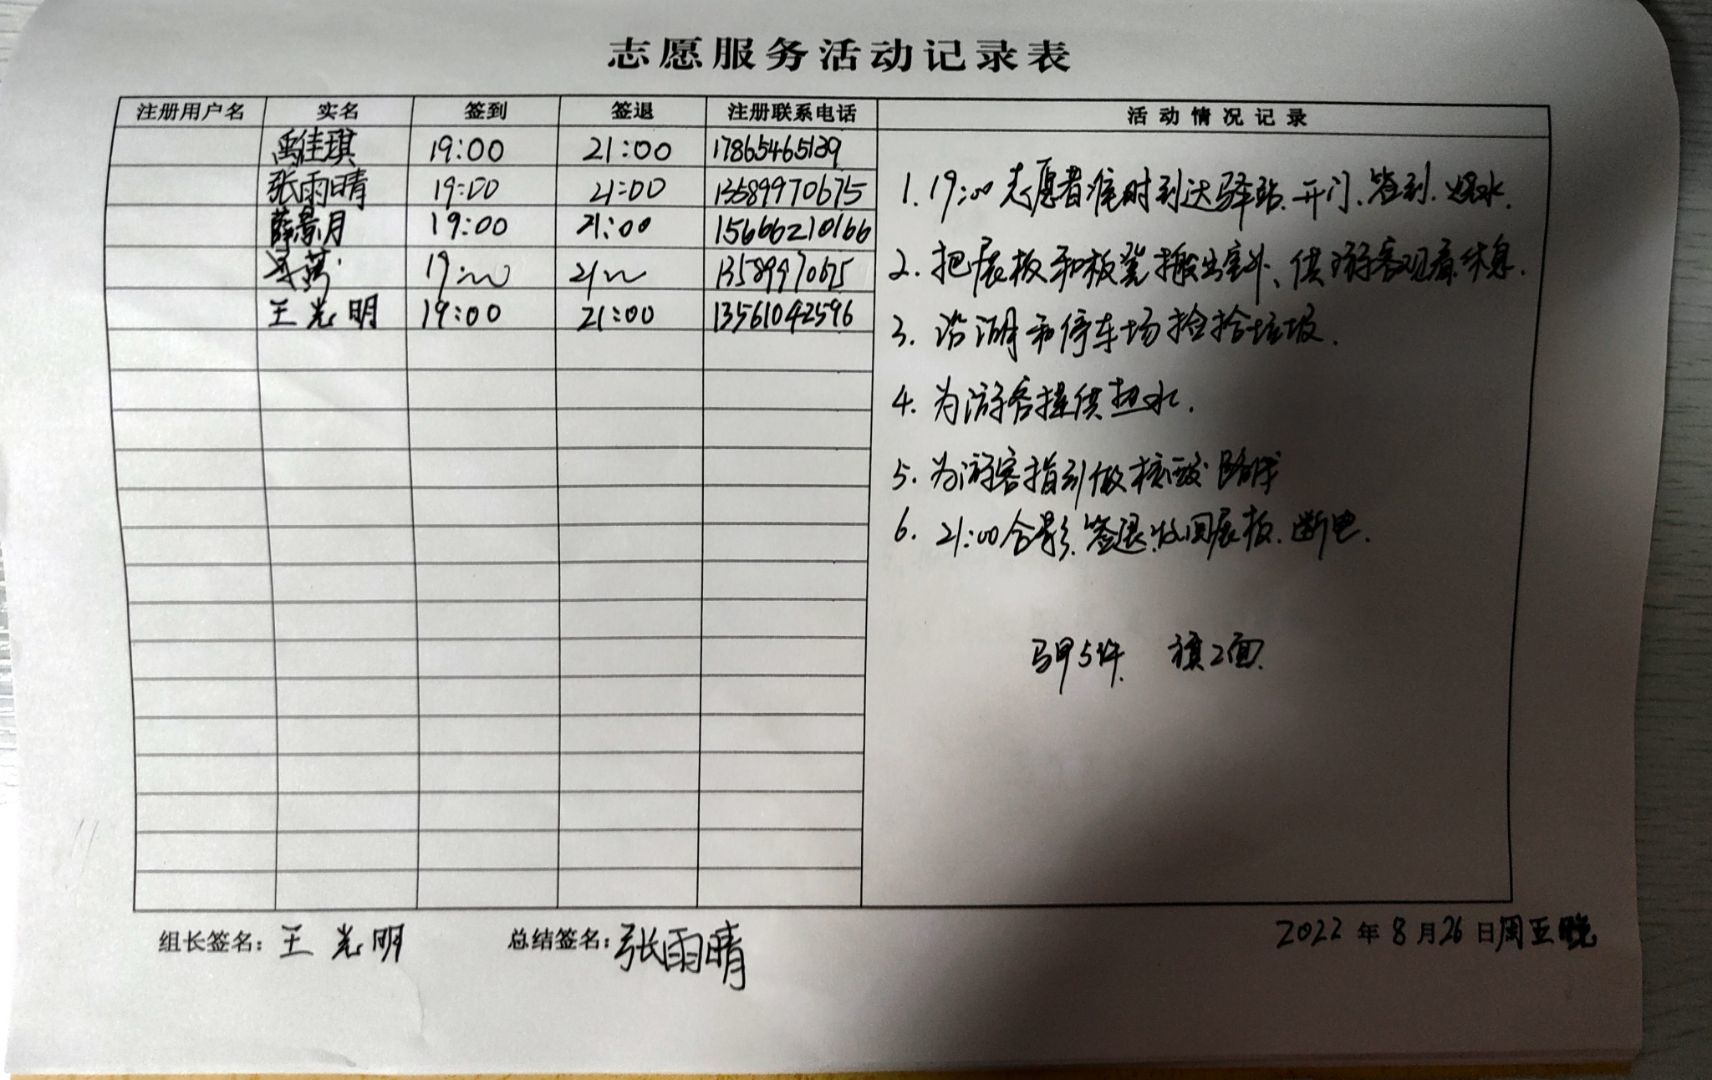 志愿服务活动记录表
注册用户名 实名 签到 签退 注册联系电话 活动情况记录
禹佳琪 19:00 21:00 17865465129
张雨晴 19:00 21:00 13589970675
薛景月 19:00 21:00 15666210166
19: 21 13589970675
王光明 19:00 21:00 13561042596
1. 19:00志愿者准时到达驿站、开门、签到、烧水.
2. 把展板和板凳搬出室外、供游客观看休息.
3. 沿湖和停车场捡拾垃圾.
4. 为游客提供热水.
5. 为游客指引做核酸路线
6. 21:00合影、签退、收回展板、断电.
马甲5件 旗2面.
组长签名：王光明 总结签名：张雨晴 2022年8月26日周五晚